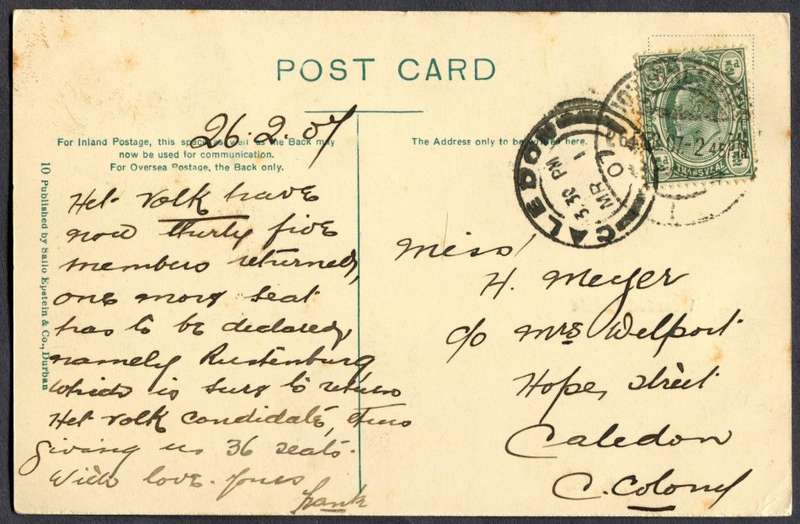 POST CARD
26.2.07
For Inland Postage, this space as well as the Back may
now be used for communication.
For Oversea Postage, the Back only.
The Address only to be written here.
CALEDON
3.30 PM
MR 1
07
10 Published by Sallo Epstein & Co., Durban
Het Volk have
now thirty five
members returned,
one more seat
has to be declared,
namely Rustenburg
which is sure to return
Het Volk candidate, thus
giving us 36 seats.
With love. Yours
Frank
Miss
H. Meyer
c/o Mrs Welport
Hope, Street
Caledon
C. Colony